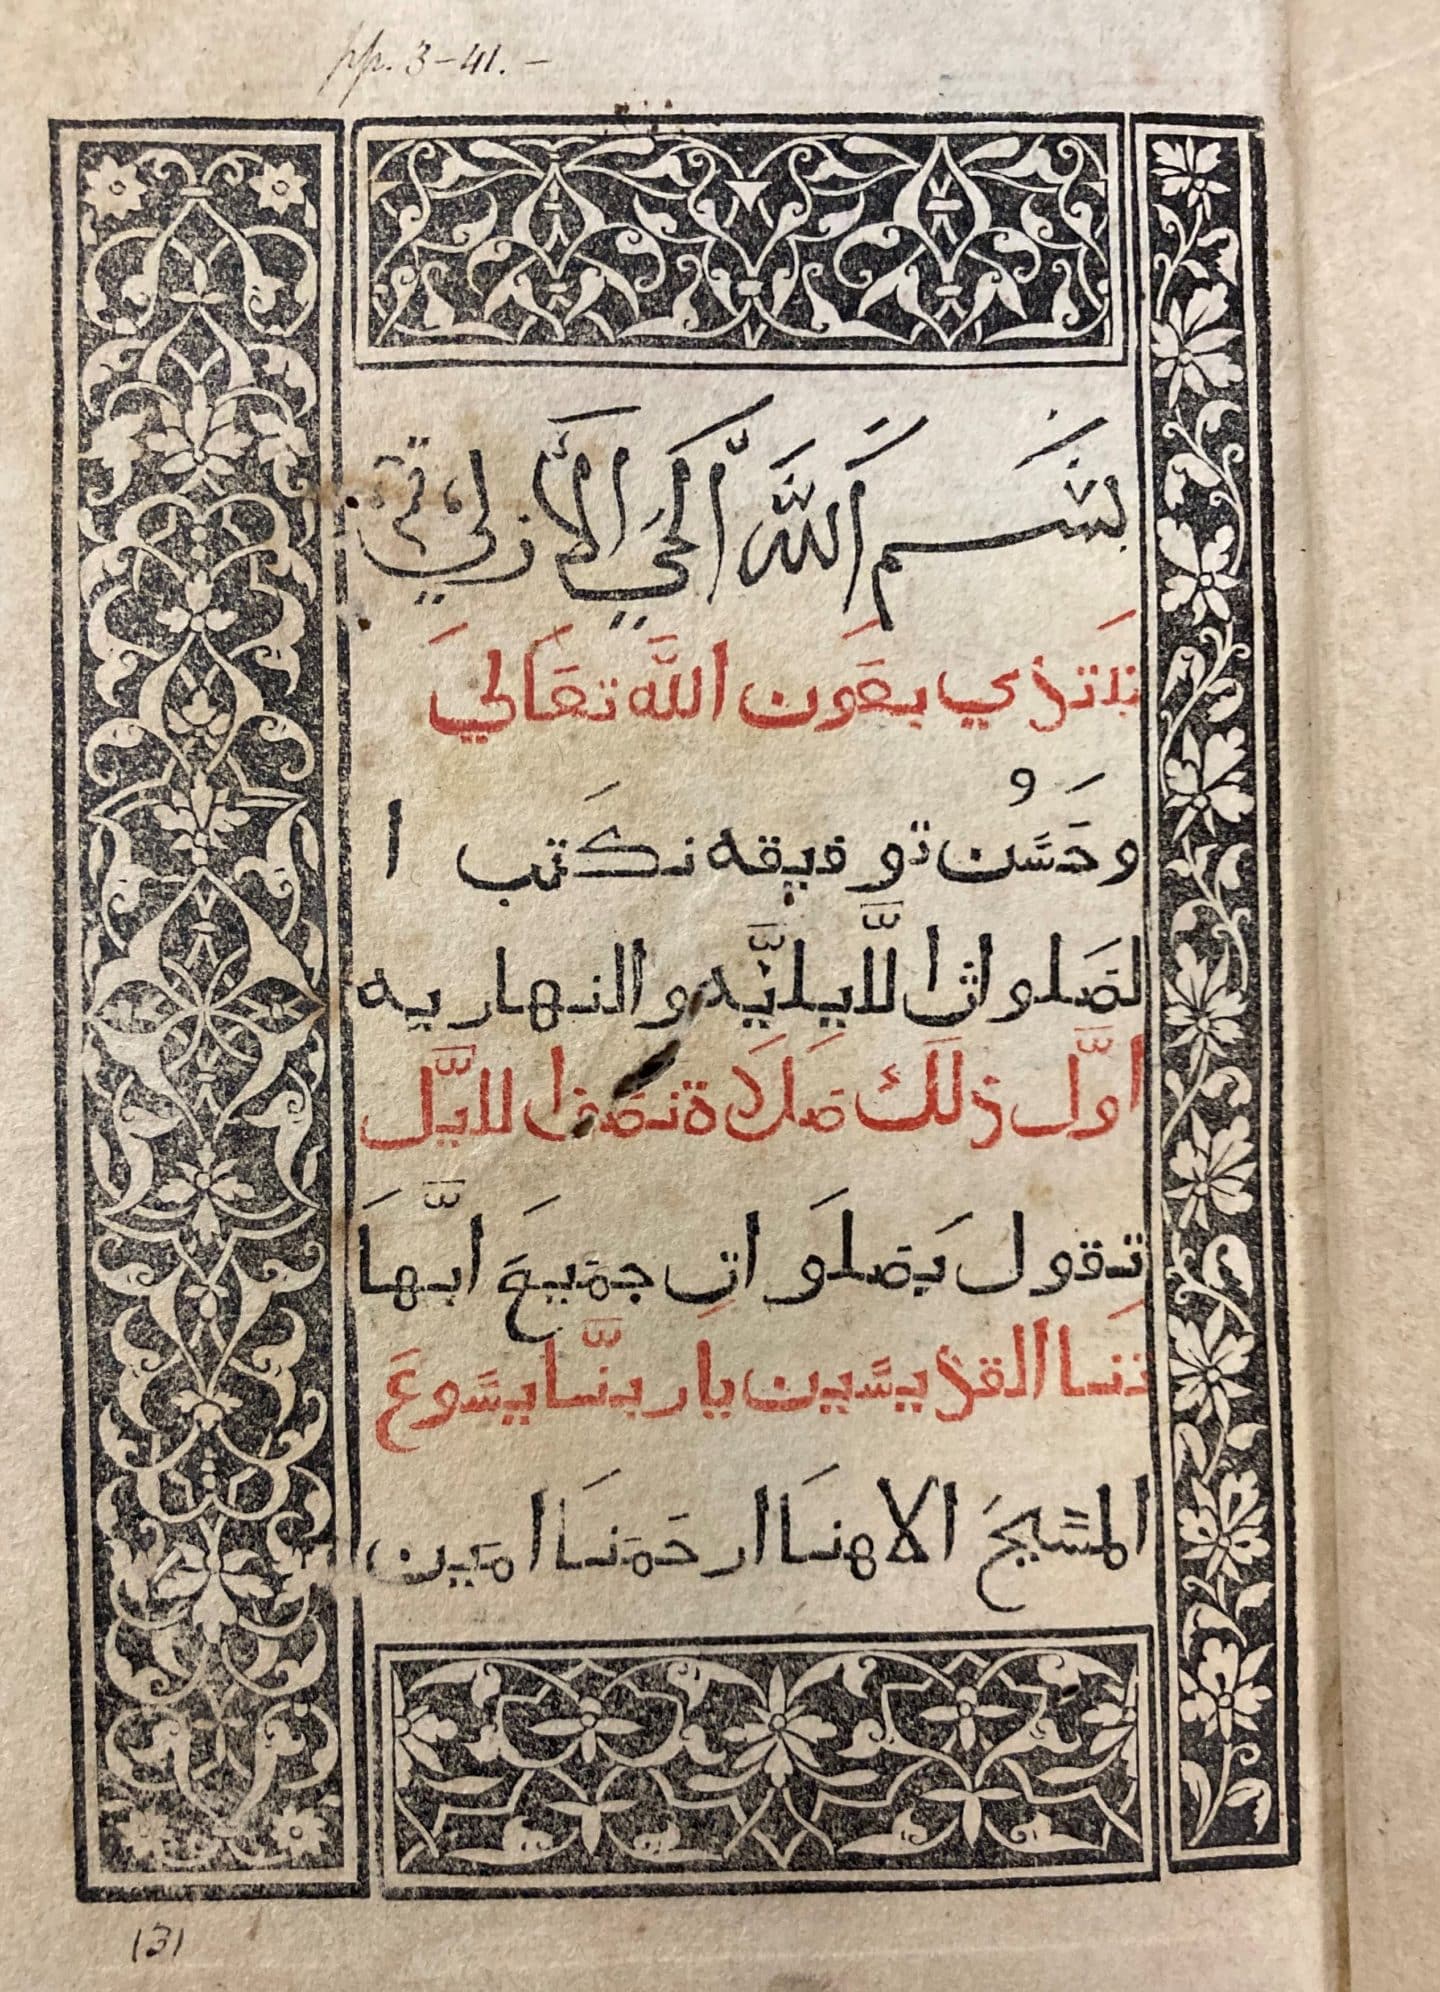 pp. 3-41. -
بسم الله الحي الازلي
نبتدي بعون الله تعالي
وحسن توفيقه نكتب ا
لصلواث الليليه والنهاريه
اول ذلك صلاة نصف الليل
تقول بصلوات جميع ابها
تنا القديسين يا ربنا يسوع
المسيح الاهنا ارحمنا امين
131